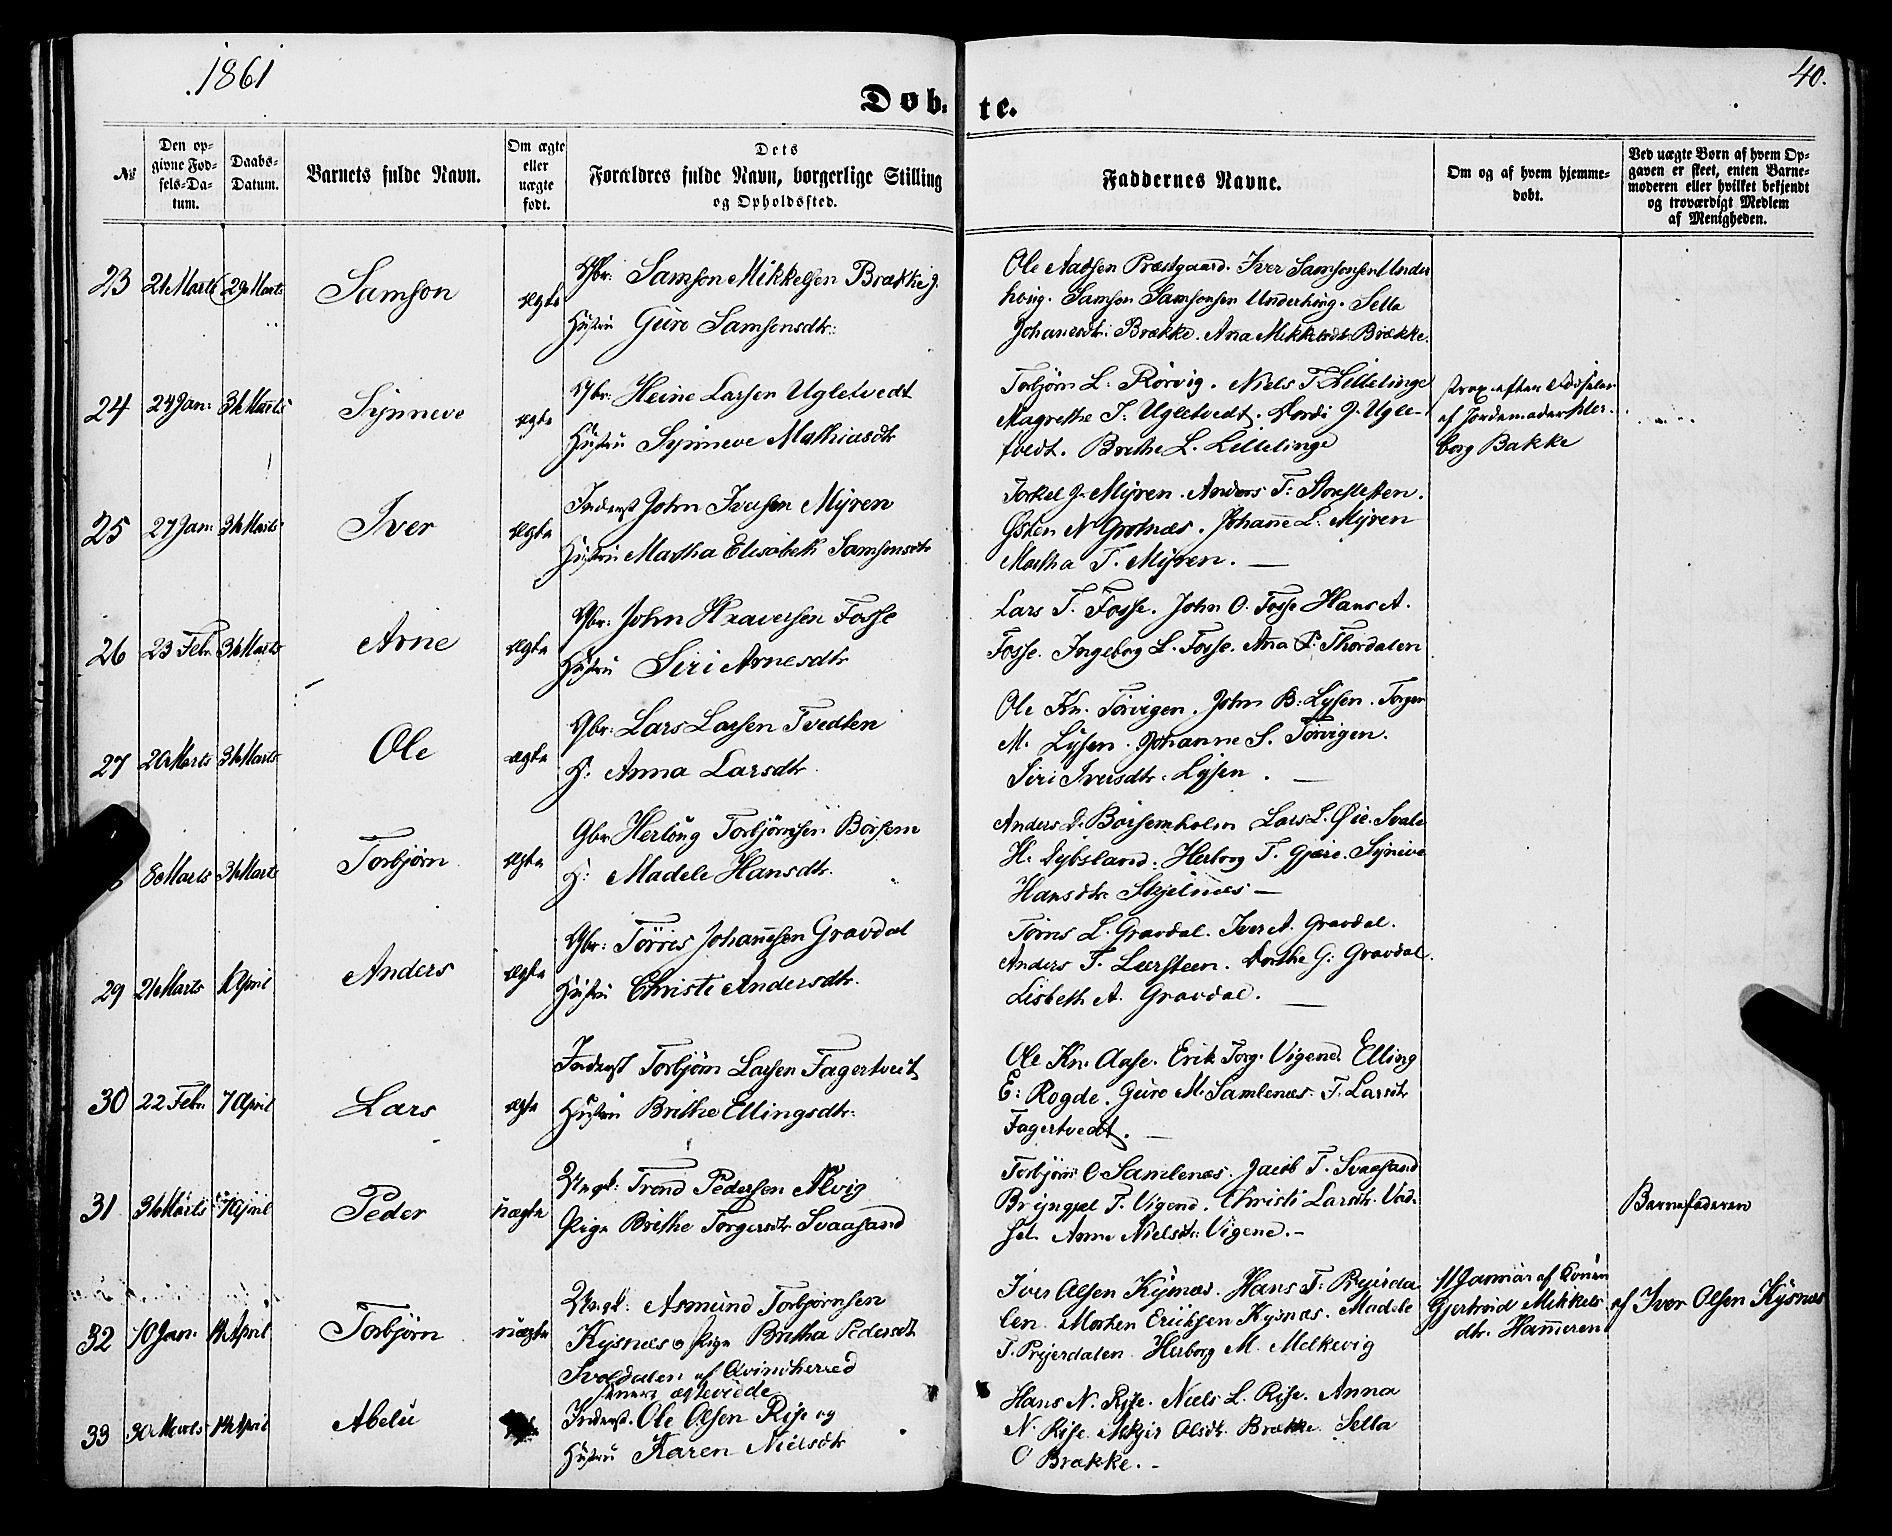 1861
40.
Døb-
te.
№
Den op-
givne Fød-
sels-Da-
tum.
Daabs-
Datum.
Barnets fulde Navn.
Om ægte
eller
uægte
født.
Dets
Forældres fulde Navn, borgerlige Stilling
og Opholdssted.
Faddernes Navne.
Om og af hvem hjemme-
døbt.
Ved uægte Børn af hvem Op-
gaven er skeet, enten Barne-
moderen eller hvilket bekjendt
og troværdigt Medlem
af Menigheden.
23 21 Marts 29 Marts Samson ægte
Gbr: Samson Mikkelsen Brække
Hustru Guro Samsonsdtr:
Ole Aadsen Præstgaard. Iver Samsonsen Under
houg. Samson Samsonsen Underhoug. Sella
Johanesdtr: Brække. Ana Mikkelsdtr Brække.
24 24 Jan: 31 Marts Synneve ægte
Gbr: Heine Larsen Ugletvedt
Hustru Synneve Mathiasdtr
Torbjørn L: Rørvig. Niels T. Lillelinge
Magrethe J: Ugletvedt. Dordi J. Ugle-
tvedt. Brethe L. Lillelinge
strax efter Fødselen
af Jordemoder Her-
borg Bakke
25 27 Jan: 31 Marts Iver ægte
Inderst John Iversen Myren
Hustru Martha Elisabeth Samsonsdtr
Torkel J. Myren. Anders T: Storesletten.
Østen N Grotnæs. Johane L. Myren
Martha T. Myren. —
26 23 Febr. 31 Marts Arne ægte
Gbr: John Haaversen Fosse
Hustru Siri Arnesdtr
Lars T. Fosse. John O. Fosse Hans A.
Fosse. Ingeborg L. Fosse. Ana T. Thordalen
27 20 Marts 31 Marts Ole ægte
Gbr: Lars Larsen Tvedten
H: Anna Larsdtr.
Ole Kn. Torvigen. John B: Lysen. Torger
M. Lysen. Johanne S. Torvigen.
Siri Iversdtr. Lysen. —
8 Marts 31 Marts Torbjørn ægte
Gbr Herloug Torbjørnsen Børsem
H: Madele Hansdtr.
Anders D. Børsemholm Lars L. Øie. Svale
H. Dybsland. Herborg T. Gjære. Syneve
Hansdtr. Skjelnæs —
29 21 Marts 1 April Anders ægte
Gbr: Tørris Johanesen Gravdal
Hustru Christi Andersdtr.
Tørris L. Gravdal. Iver A. Gravdal.
Anders T. Leersteen. Dorthe G: Gravdal.
Lisbeth A. Gravdal. —
30 22 Febr. 7 April Lars ægte
Inderst Torbjørn Larsen Fagertveit
Hustru Brithe Ellingsdtr.
Ole Kn. Aase. Erik Torg. Vigend. Elling
E: Rogde. Guro M. Samlenæs. T. Larsdtr
Fagertvedt. —
31 31 Marts 7 April Peder uægte
Ungk: Trond Pedersen Alvig
Pige Brithe Torgersdtr Svaasand
Torbjørn O Samlenæs. Jacob T. Svaasand
Brynjel T. Vigend. Christi Larsdtr.
Anne Nielsdtr: Vigene. —
Barnefaderen
32 10 Jan: 14 April Torbjørn uægte
Ungk: Asmund Torbjørnsen
Kysnæs og Pige Britha Pedersdtr
Svoldalen af Qvindherred
Iver Olsen Kysnæs. Hans T: Preierda
len. Morten Eriksen Kysnæs. Madele
T. Preierdalen. Herborg M. Melkevig
11 Januar af Konen
Gjertrud Mikkels
dtr. Hameren
af Iver Olsen Kysnæs
33 30 Marts 14 April Abelu
senere ægteviede
Inderst. Ole Olsen Rise og
Hustru Karen Nielsdtr
Hans N. Rise. Niels L. Rise. Anna
N. Rise. Olsdtr. Brække. Sella
O Brække. —